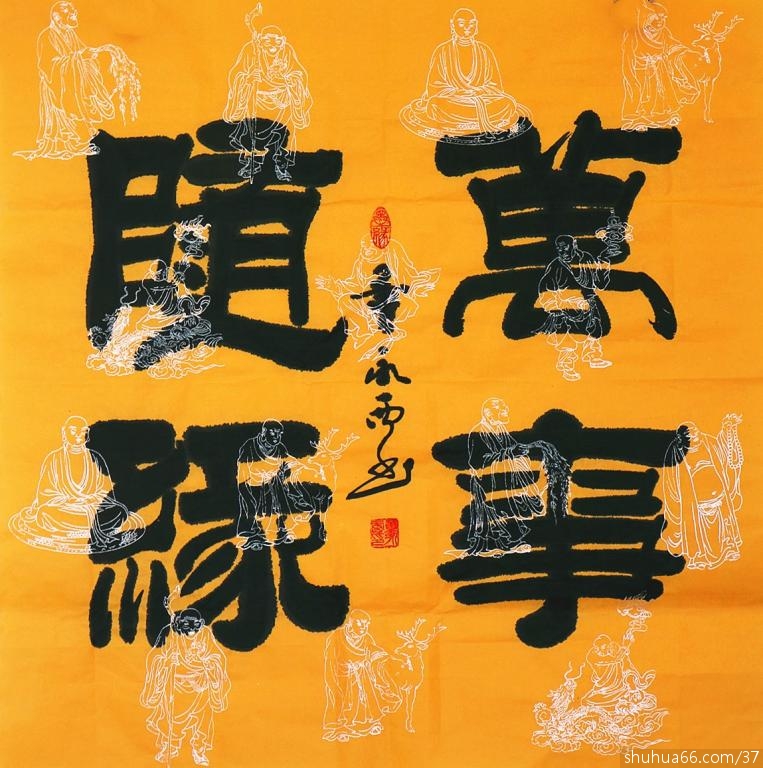 萬事
隨緣
shuhua66.com/37